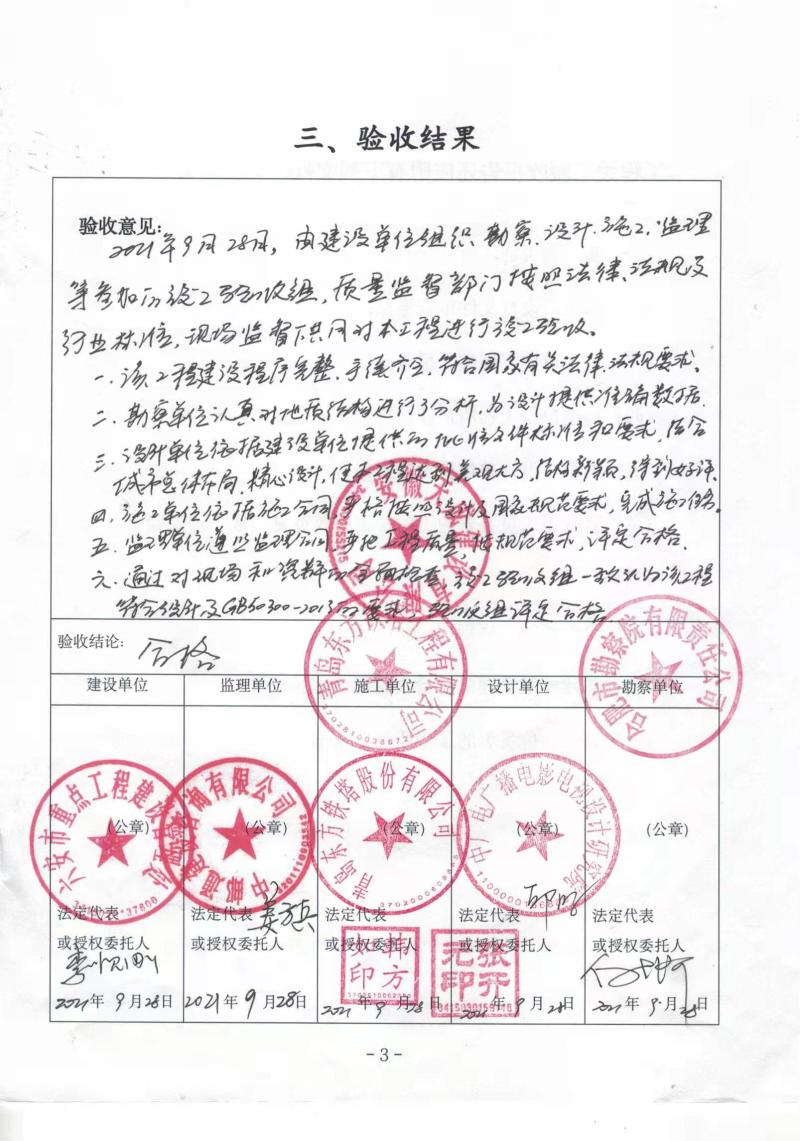 三、验收结果
验收意见:
2021年9月28日，由建设单位组织勘察、设计、施工、监理
等参加的竣工验收组，质量监督部门按照法律、法规及
行业标准，现场监督下共同对本工程进行竣工验收。
一、该工程建设程序完整、手续齐全，符合国家有关法律、法规要求。
二、勘察单位认真对地质结构进行了分析，为设计提供准确数据.
三、设计单位依据建设单位提供的批准文件标准和要求，结合
城市总体布局，精心设计，使本工程达到美观大方，结构新颖，得到好评.
四、施工单位依据施工合同，严格按照设计及国家规范要求，完成施工任务。
五、监理单位遵照监理合同，严把工程质量，按规范要求，评定合格.
六、通过对现场和资料的全面检查，竣工验收组一致认为该工程
符合设计及GB50300-2013的要求，验收组评定合格
验收结论: 合格
建设单位 监理单位 施工单位 设计单位 勘察单位
青岛东方铁塔工程有限公司
3702810036672
合肥市勘察院有限责任公司
六安市重点工程建设
有限公司
青岛东方铁塔股份有限公司
中广电广播电影电视设计研究院
(公章) (公章) (公章) (公章) (公章)
法定代表 法定代表 法定代表 法定代表 法定代表
或授权委托人 或授权委托人 或授权委托人 或授权委托人 或授权委托人
韩方
如印
张开
元印
2021年9月28日 2021年9月28日 2021年9月28日 2021年9月28日 2021年9月28日
- 3 -